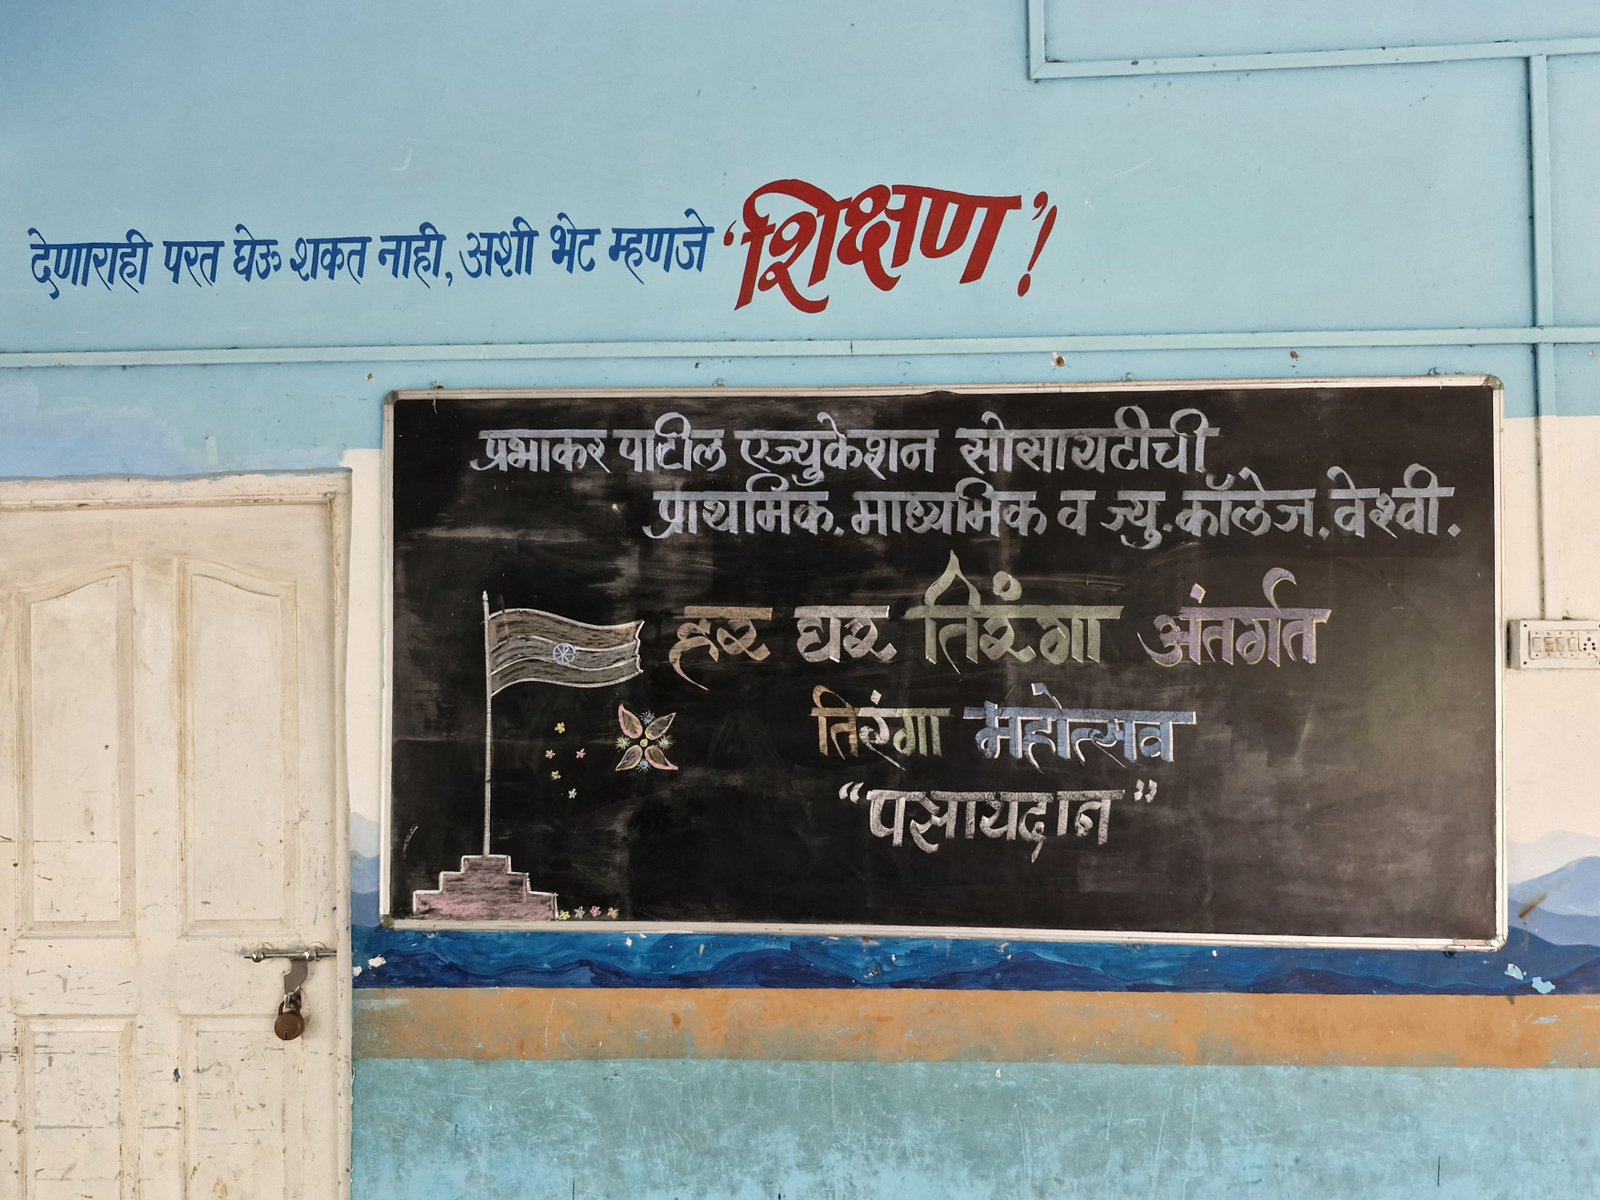 देणाराही परत घेऊ शकत नाही, अशी भेट म्हणजे ‘शिक्षण’!
प्रभाकर पाटील एज्युकेशन सोसायटीची
प्राथमिक. माध्यमिक व ज्यु. कॉलेज. वेश्वी.
हर घर तिरंगा अंतर्गत
तिरंगा महोत्सव
“पसायदान”